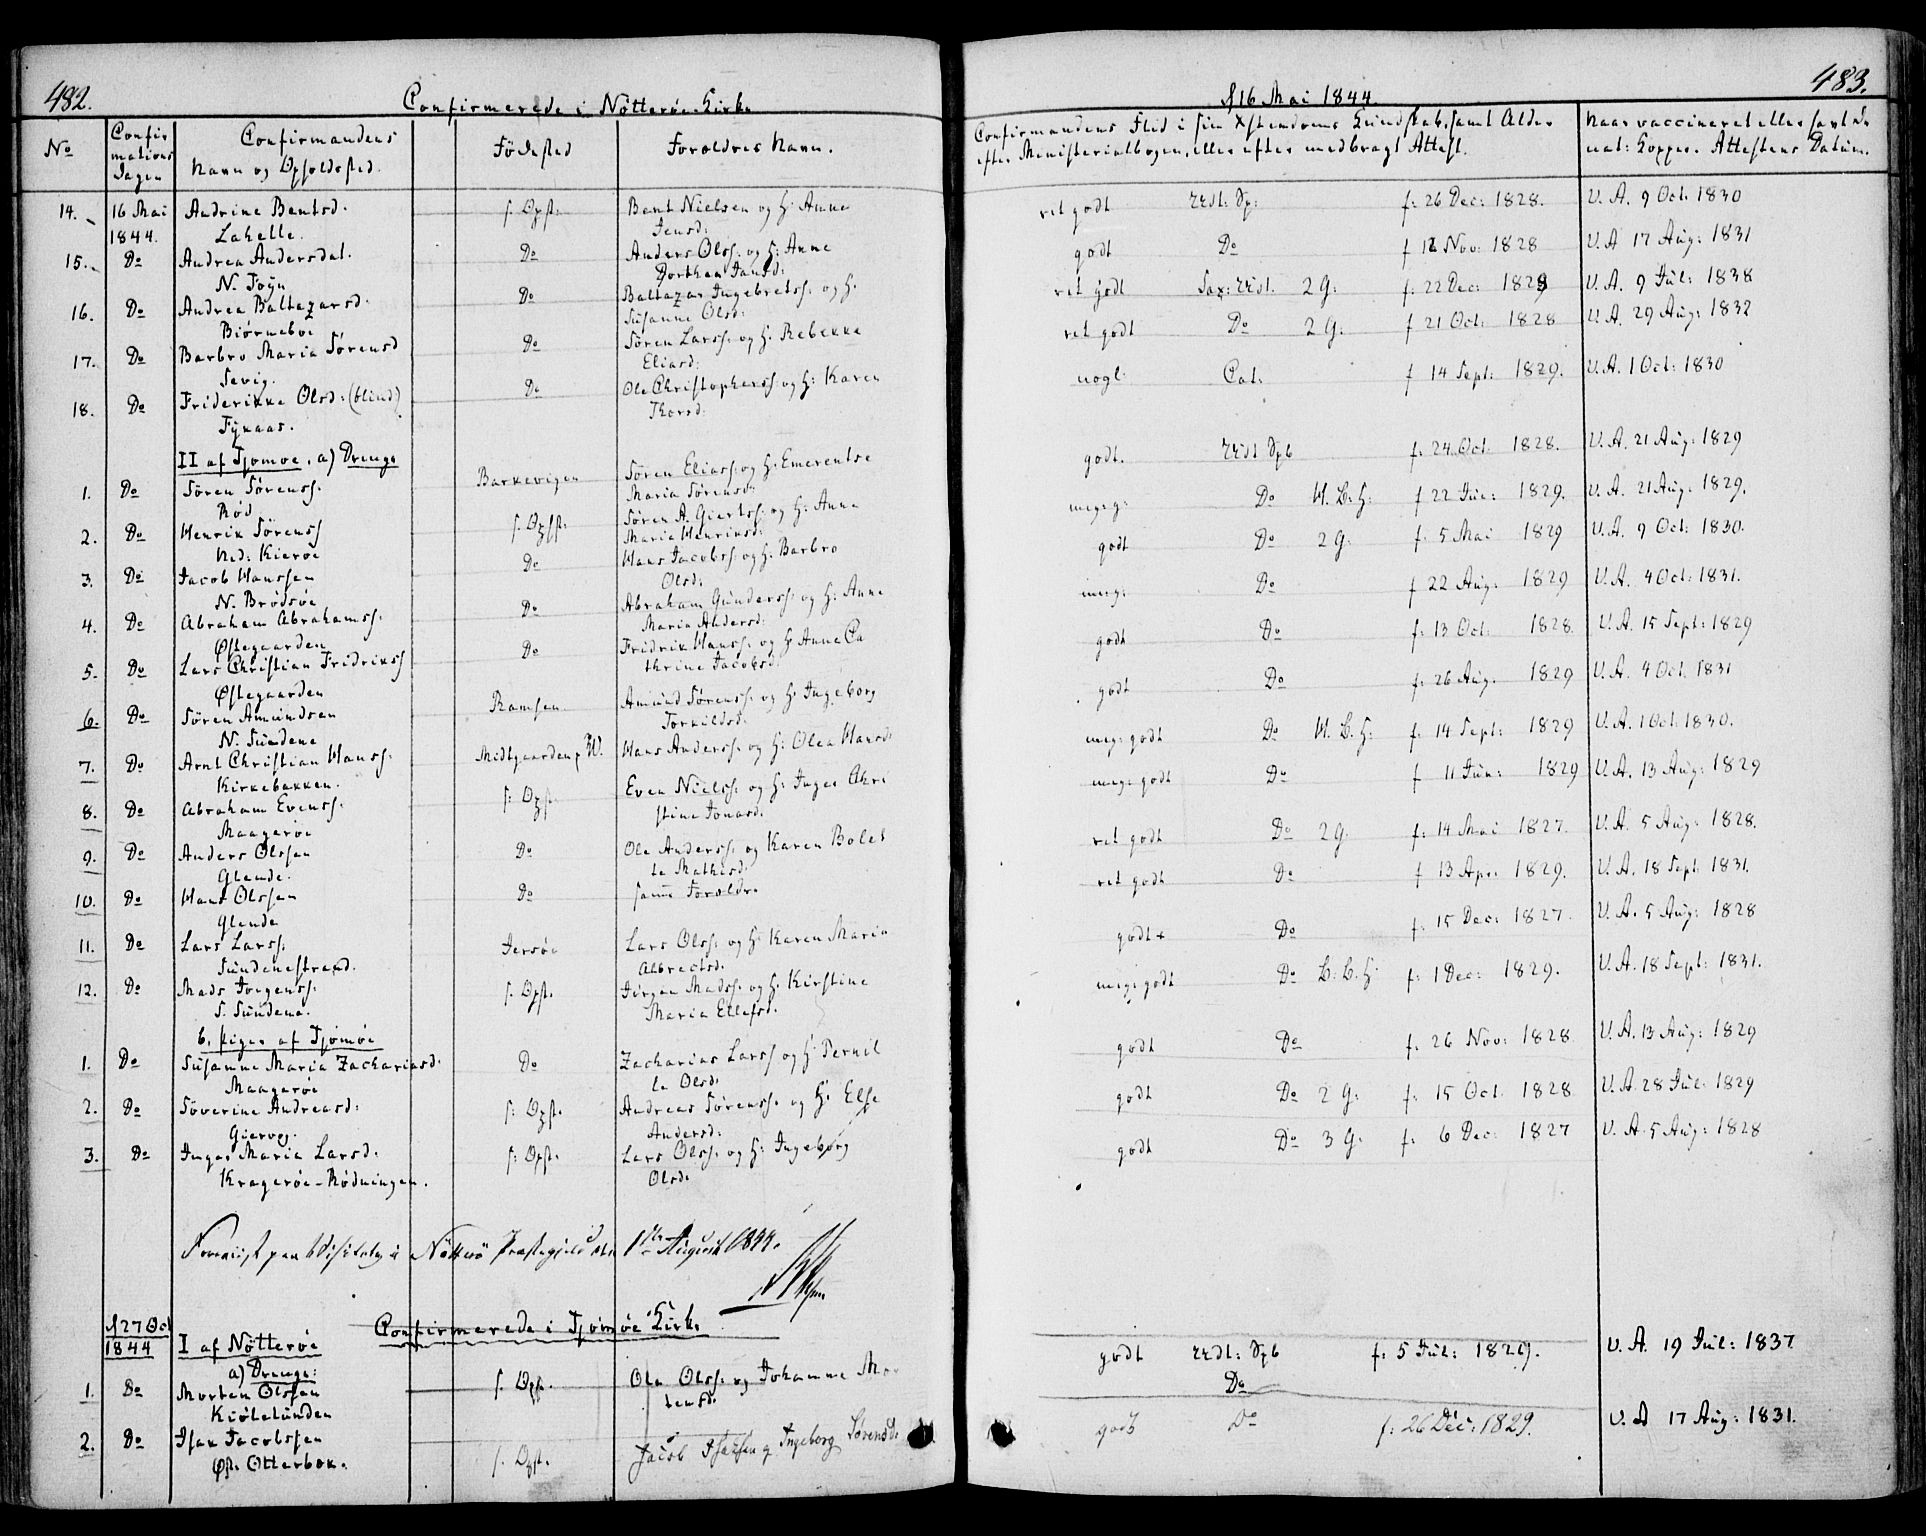 482.
Confirmerede i Nötterøe Kirke
No
Confir
mations
Dagen
Confirmandens
Navn og Opholdssted.
Fødested
Forældres Navn.
14. 16 Mai 1844. Andrine Bentsd.
Lahelle.
s. Opst. Bent Nielsen og H: Anne
Jensd:
15. Do Andrea Andersdat.
N. Føyn
Do Anders Olss. og H: Anne
Dorthea Jansd:
16. Do Andrea Baltazarsd.
Biørneboe
Do Baltazar Ingebretss. og H.
Susanne Olsd:
17. Do Barbro Maria Sørensd
Sevig.
Do Sören Larss. og H. Rebekke
Eliasd:
18. Do Friderikke Olsd: (blind)
Fynaas.
Do Ole Christophers: og H: Karen
Thorsd:
II af Tjømøe. a) Drenge
1. Do Sören Sörenss.
Röd
Barkevigen Sören Eliass. og H. Emerentse
Maria Sörensd:
2. Do Henrik Sörenss
Ned: Kierøe
s. Opst. Sören A. Giertss. og H: Anne
Maria Henriksd:
3. Do Jacob Hanssen
N. Brödsøe
Do Hans Jacobss og H. Barbro
Olsd:
4. Do Abraham Abrahamss.
Østegaarden
Do Abraham Gunderss. og H: Anne
Maria Andersd:
5. Do Lars Christian Fridrikss
Østegaarden
Do Fridrik Hanss. og H Anne Ca
thrine Jacobsd.
6. Do Sören Amundsen
N. Sundene
Ramsen Amund Sörenss. og H. Ingeborg
Torkildsd.
7. Do Arnt Christian Hanss.
Kirkebakken.
Midtgaarden p H. Hans Anderss. og H: Olea Hansd:
8. Do Abraham Evenss.
Maagerøe
s. Opst. Even Nielss. og H: Inger Chri
stine Jonasd.
9. Do Anders Olssen
Glende.
Do Ole Anderss. og Karen Bolet
te Mathisd.
10. Do Hans Olssen
Glende
Do samme Forældre
11. Do Lars Larss.
Sundenestrand.
Jersøe Lars Olss. og H: Karen Maria
Albrectsd.
12. Do Mads Jørgenss.
S. Sundene.
s. Opst. Jörgen Madss. og H. Kirstine
Maria Ellefsd.
b. Piger af Tjømøe
1. Do Susanne Maria Zachariasd.
Maagerøe
Do Zacharias Larss og H. Pernil
le Olsd.
2. Do Söverine Andreasd:
Giervog.
s: Opst. Andreas Sörenss. og H. Else
Andersd:
3. Do Inger Maria Larsd.
Kragerøe-Rödningen.
s: Opst. Lars Olss. og H: Ingeborg
Olsd.
Foreviist paa Visitats i Nötterö Præstegjeld den 1ste August 1844.
Confirmerede i Tjømøe Kirke
d 27 Oct
1844
I af Nötterøe
a) Drenge:
1. Do Morten Olssen
Kiölelunden
s. Opst. Ole Olss. og Johanne Mor
tensd.
2. Do Isak Jacobssen
Øst. Otterbek.
s. Opst. Jacob Isachsen og Ingeborg Sörensd:
483.
d 16 Mai 1844.
Confirmandens Flid i sin Xstendoms Kundskab, samt Alder
efter Ministerialbogen, eller efter medbragt Attest.
Naar vaccineret eller havt de
nat: Kopper. Attestens Datum.
ret godt f: 26 Dec: 1828. V. A. 9 Oct: 1830
godt Do f 12 Nov: 1828 V. A 17 Aug: 1831
ret godt 2 G: f: 22 Dec: 1828 V. A. 9 Jul: 1838
ret godt Do 2 G: f 21 Oct: 1828 V. A. 29 Aug: 1832
nogl: Cat: f 14 Sept: 1829. V. A. 1 Oct: 1830
godt. f: 24 Oct: 1828. V. A. 21 Aug: 1829
meg: g: Do f 22 Jun: 1829. V. A. 21 Aug: 1829.
godt Do 2 G: f. 5 Mai 1829 V. A. 9 Oct: 1830.
meg: Do f 22 Aug: 1829 V. A. 4 Oct: 1831.
godt Do f: 13 Oct: 1828. V. A. 15 Sept: 1829
godt Do f: 26 Aug. 1829 V. A. 4 Oct. 1831
meg: godt Do f: 14 Sept: 1829 V. A. 1 Oct: 1830.
meg: godt Do f 11 Jun: 1829 V. A. 13 Aug: 1829
ret godt Do 2 G. f: 14 Mai 1827. V. A. 5 Aug: 1828.
ret godt Do f 13 Apr: 1829. V. A. 18 Sept: 1831.
godt + Do f: 15 Dec: 1827. V. A. 5 Aug: 1828
meg: godt Do f: 1 Dec: 1829. V. A. 18 Sept: 1831.
godt Do f: 26 Nov: 1828 V. A. 13 Aug: 1829
godt Do 2 G. f: 15 Oct: 1828 V. A. 28 Jul: 1829
godt Do 3 G. f: 6 Dec: 1827 V. A. 5 Aug: 1828
godt f: 5 Jul: 1829. V. A. 19 Jul: 1837
Do
godt Do f: 26 Dec: 1829. V. A 17 Aug: 1831.